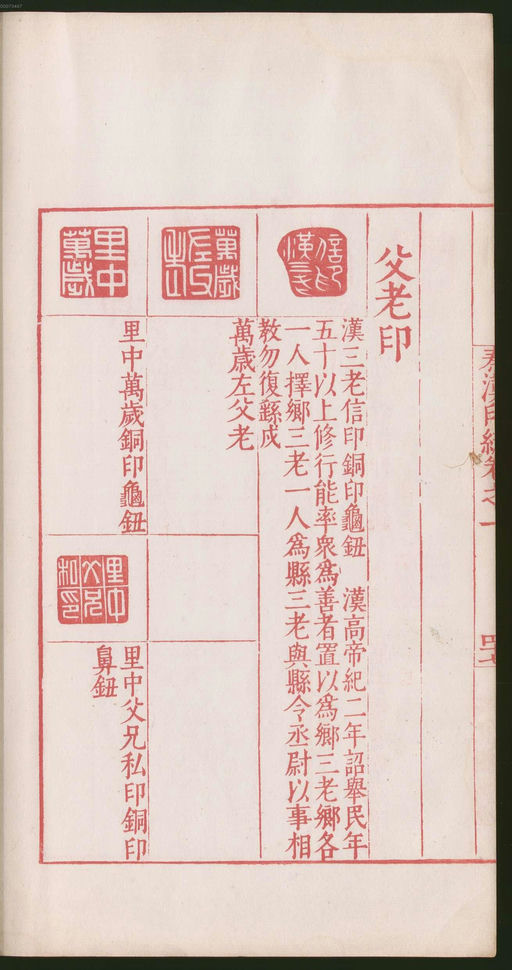 00073447
秦漢印統卷之一
四七
父老印
漢三老信印銅印龜鈕 漢高帝紀二年詔舉民年
五十以上修行能率衆爲善者置以爲鄉三老鄉各
一人擇鄉三老一人爲縣三老與縣令丞尉以事相
教勿復繇戍
萬歲左父老
里中萬歲銅印龜鈕
里中萬歲
里中父兄私印銅印
鼻鈕
里中父兄私印